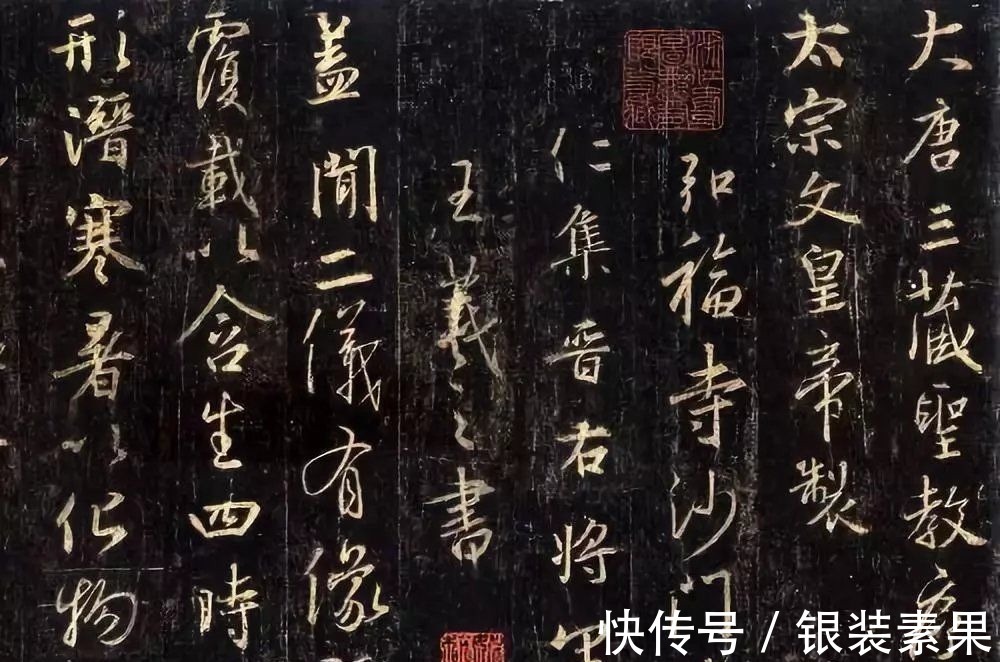 大唐三藏聖教序
太宗文皇帝製
弘福寺沙門
仁集晋右將軍
王羲之書
盖聞二儀有像
覆載以含生四時
形潛寒暑以化物
快传号 / 银装素果